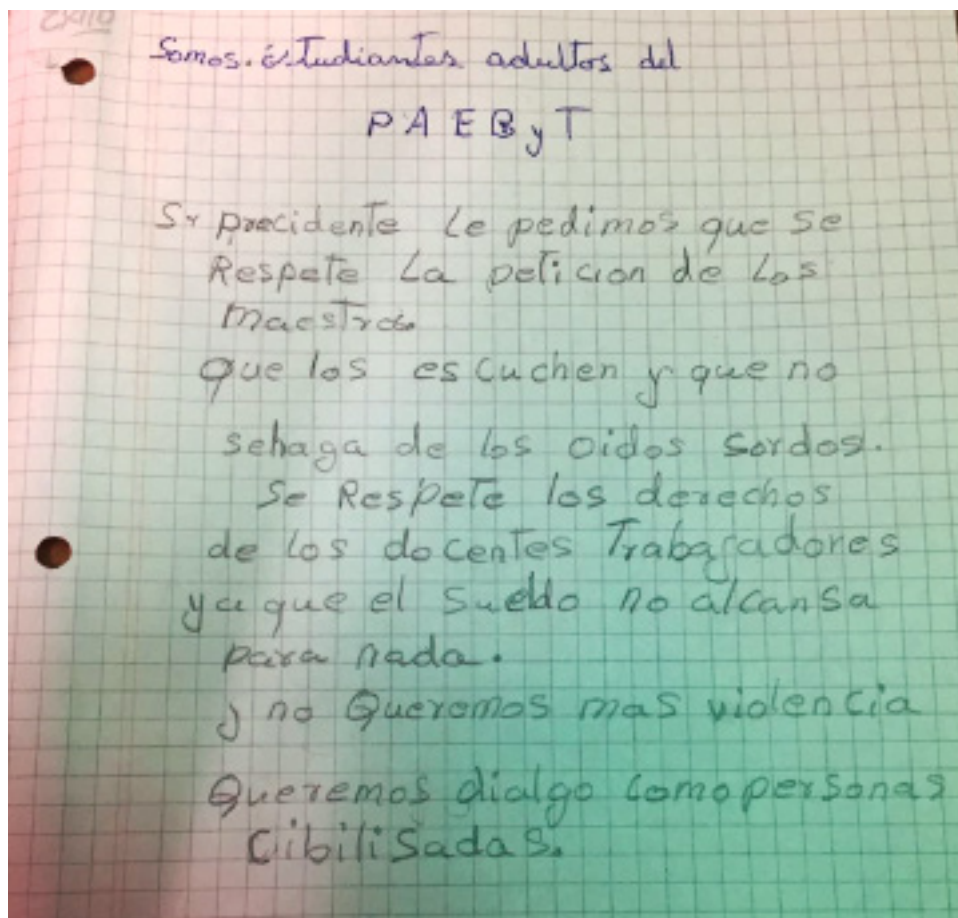 Somos. estudiantes adultos del
PAEByT
Sr precidente Le pedimos que se
Respete La peticion de Los
maestros
que los escuchen y que no
sehaga de los oidos sordos.
Se Respete los derechos
de los docentes Trabajadores
ya que el sueldo no alcansa
para nada.
y no Queremos mas violencia
Queremos dialgo como personas
Cibilisadas.